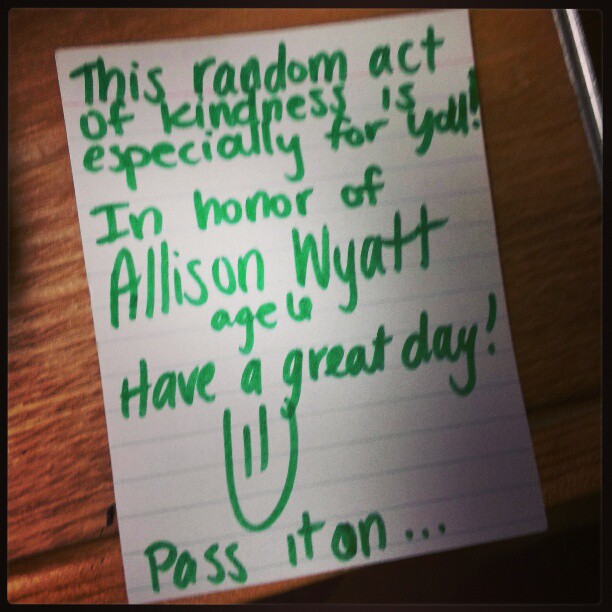 This random act
of kindness is
especially for you!
In honor of
Allison Wyatt
age 6
Have a great day!
Pass it on...